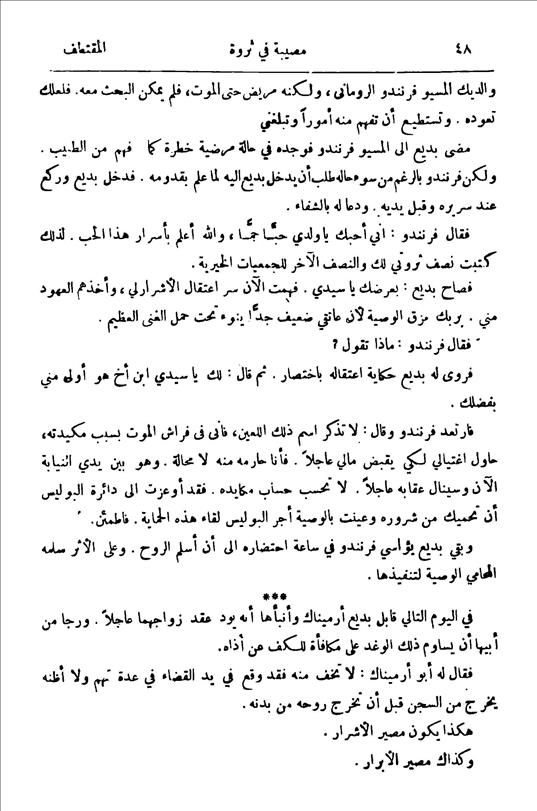 ٤٨ مصيبة في ثروة المقتطف
والديك المسيو فرنندو الرومانى، ولكنه مريض حتى الموت، فلم يمكن البحث معه. فلعلك
تعوده. وتستطيع أن تفهم منه أموراً وتبلغني
مضى بديع الى المسيو فرنندو فوجده في حالة مرضية خطرة كما فهم من الطبيب.
ولكن فرنندو بالرغم من سوء حاله طلب أن يدخل بديع اليه لما علم بقدومه. فدخل بديع وركع
عند سريره وقبل يديه. ودعا له بالشفاء.
فقال فرنندو: اني أحبك ياولدي حبًّا جمًّا، والله أعلم بأسرار هذا الحب. لذلك
كتبت نصف ثروتي لك والنصف الآخر للجمعيات الخيرية.
فصاح بديع: بعرضك ياسيدي. فهمت الآن سر اعتقال الأشرار لي، وأخذهم العهود
مني. بربك مزق الوصية لأن عاتقي ضعيف جدًّا ينوء تحت حمل الغنى العظيم.
فقال فرنندو: ماذا تقول؟
فروى له بديع حكاية اعتقاله باختصار. ثم قال: لك ياسيدي ابن أخ هو أولى مني
بفضلك.
فارتعد فرنندو وقال: لا تذكر اسم ذلك اللعين، فانى فى فراش الموت بسبب مكيدته،
حاول اغتيالي لكي يقبض مالي عاجلاً. فأنا حارمه منه لا محالة. وهو بين يدي النيابة
الآن وسينال عقابه عاجلاً. لا تحسب حساب مكايده. فقد أوعزت الى دائرة البوليس
أن تحميك من شروره وعينت بالوصية أجر البوليس لقاء هذه الحماية. فاطمئن.
وبقي بديع يؤاسي فرنندو في ساعة احتضاره الى أن أسلم الروح. وعلى الأثر سلمه
المحامي الوصية لتنفيذها.
***
في اليوم التالي قابل بديع أرميناك وأنبأها أنه يود عقد زواجهما عاجلاً. ورجا من
أبيها أن يساوم ذلك الوغد على مكافأة للكف عن أذاه.
فقال له أبو أرميناك: لا تخف منه فقد وقع في يد القضاء في عدة تهم ولا أظنه
يخرج من السجن قبل أن تخرج روحه من بدنه.
هكذا يكون مصير الأشرار.
وكذاك مصير الأبرار.